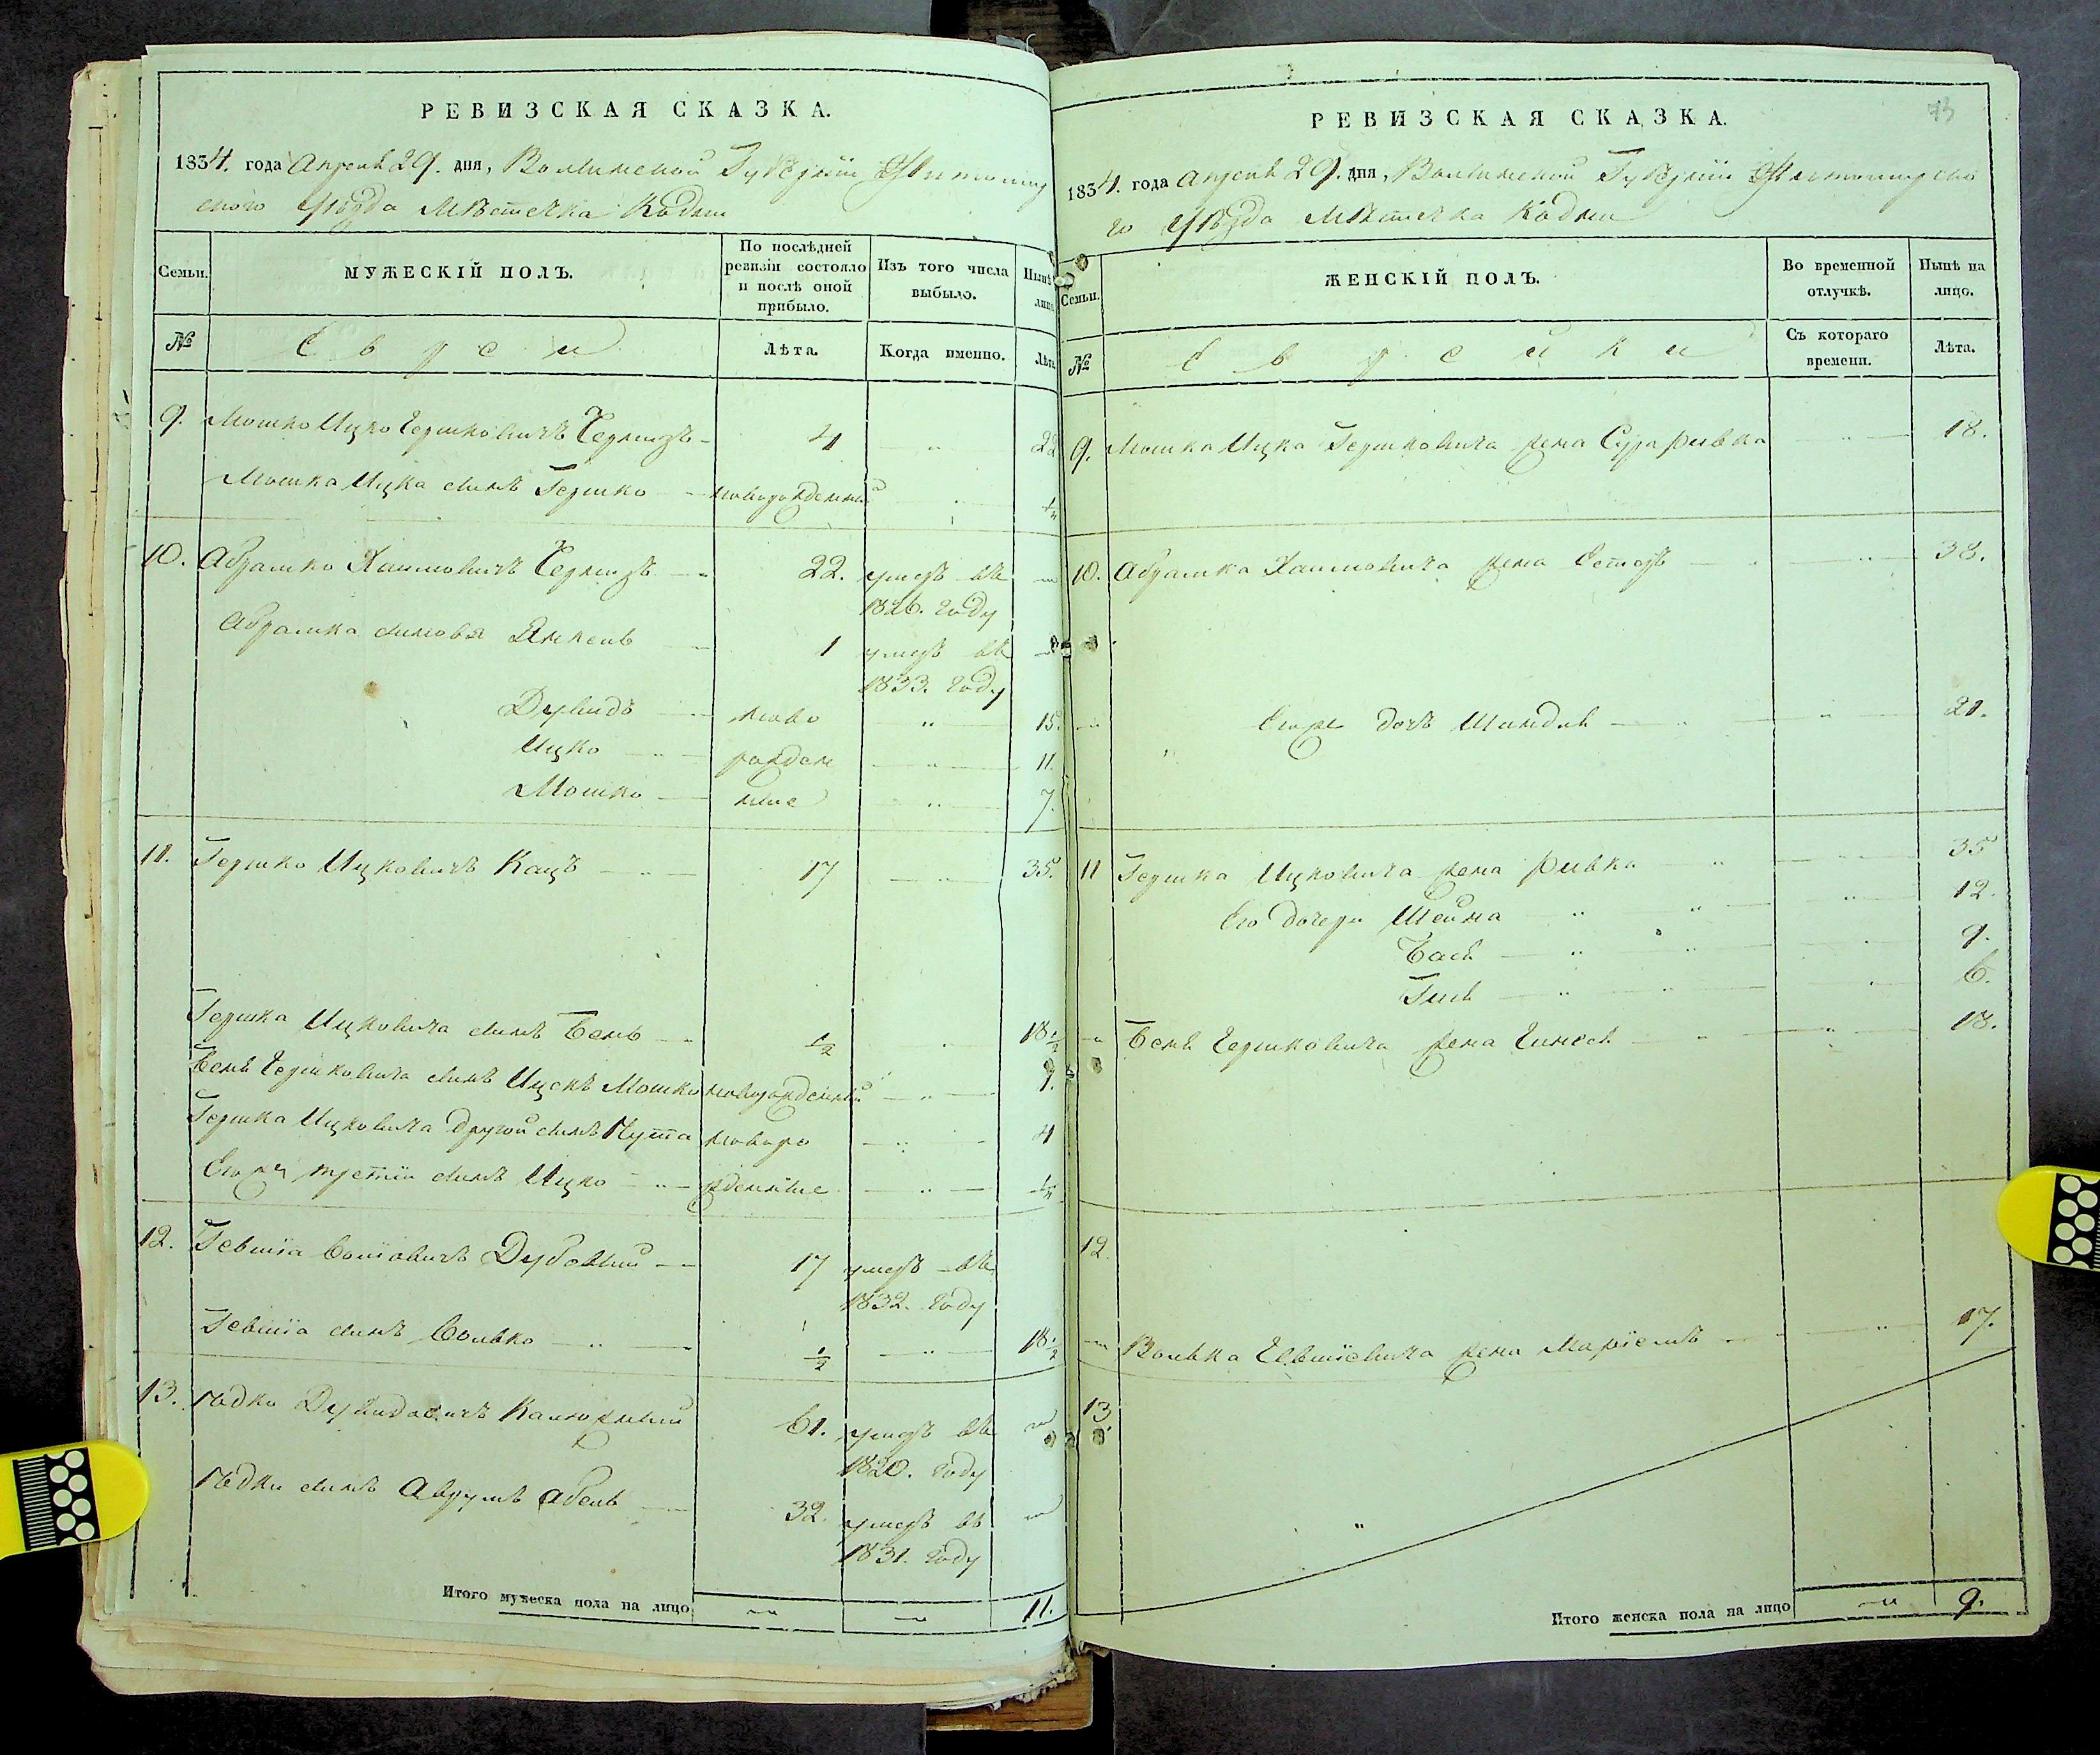 РЕВИЗСКАЯ СКАЗКА.
1834. года Апреля 29. дня, Волынской Губернiи Житомир
ского Уѣзда Мѣстечка Кодни
Семьи.
МУЖЕСКІЙ ПОЛЪ.
По послѣдней ревизіи состояло и послѣ оной прибыло.
Изъ того числа выбыло.
Нынѣ на лицо
№
Евреи
Лѣта.
Когда именно.
Лѣта
9. Мошко Ицко Гершковичъ 4 " 22
Мошка Ицка сынъ Гершко новорожденный "
10. Абрамко Хаимовичъ 22. умеръ въ
1826. году
Абрамка сыновья Янкель 1 умеръ въ
1833. году
Дувидъ ново " 15.
Ицко рожден " 11.
Мошко ные " 7.
11. Гершко Ицковичъ Кацъ 17 " 35.
Гершка Ицковича сынъ Бень ½ 18½
Бень Гершковича сынъ Ицекъ Мошко новорожденный 1.
Гершка Ицковича другой сынъ Нута новоро " 4
Его же третiй сынъ Ицко жденные "
12. Гевшiя Дубовый 17 умеръ въ
1832. году
Гевшiя сынъ Волько ½ " 18½
13. Дувидовичъ 61. умеръ въ
1820. году
сынъ Аврумъ Абель 32. умеръ въ
1831. году
Итого мужеска пола на лицо " " 11.
73
РЕВИЗСКАЯ СКАЗКА.
1834. года Апреля 29. дня, Волынской Губернiи Житомирско
го Уѣзда Мѣстечка Кодни
Семьи.
ЖЕНСКІЙ ПОЛЪ.
Во временной отлучкѣ.
Нынѣ на лицо.
№
Еврейки
Съ котораго времени.
Лѣта.
9. Мошка Ицка Гершковича жена Сура Ривка " 18.
10. Абрамка Хаимовича жена Естеръ " 38.
" Его же дочь Шиндля " 21.
11 Гершка Ицковича жена Ривка " 35
Его дочери Шейна " 12.
Бася " 9.
Гися " 6.
" Беня Гершковича жена " 18.
12.
" Волька Гевшiевича жена Марiемъ " 17.
13
"
Итого женска пола на лицо " 9.